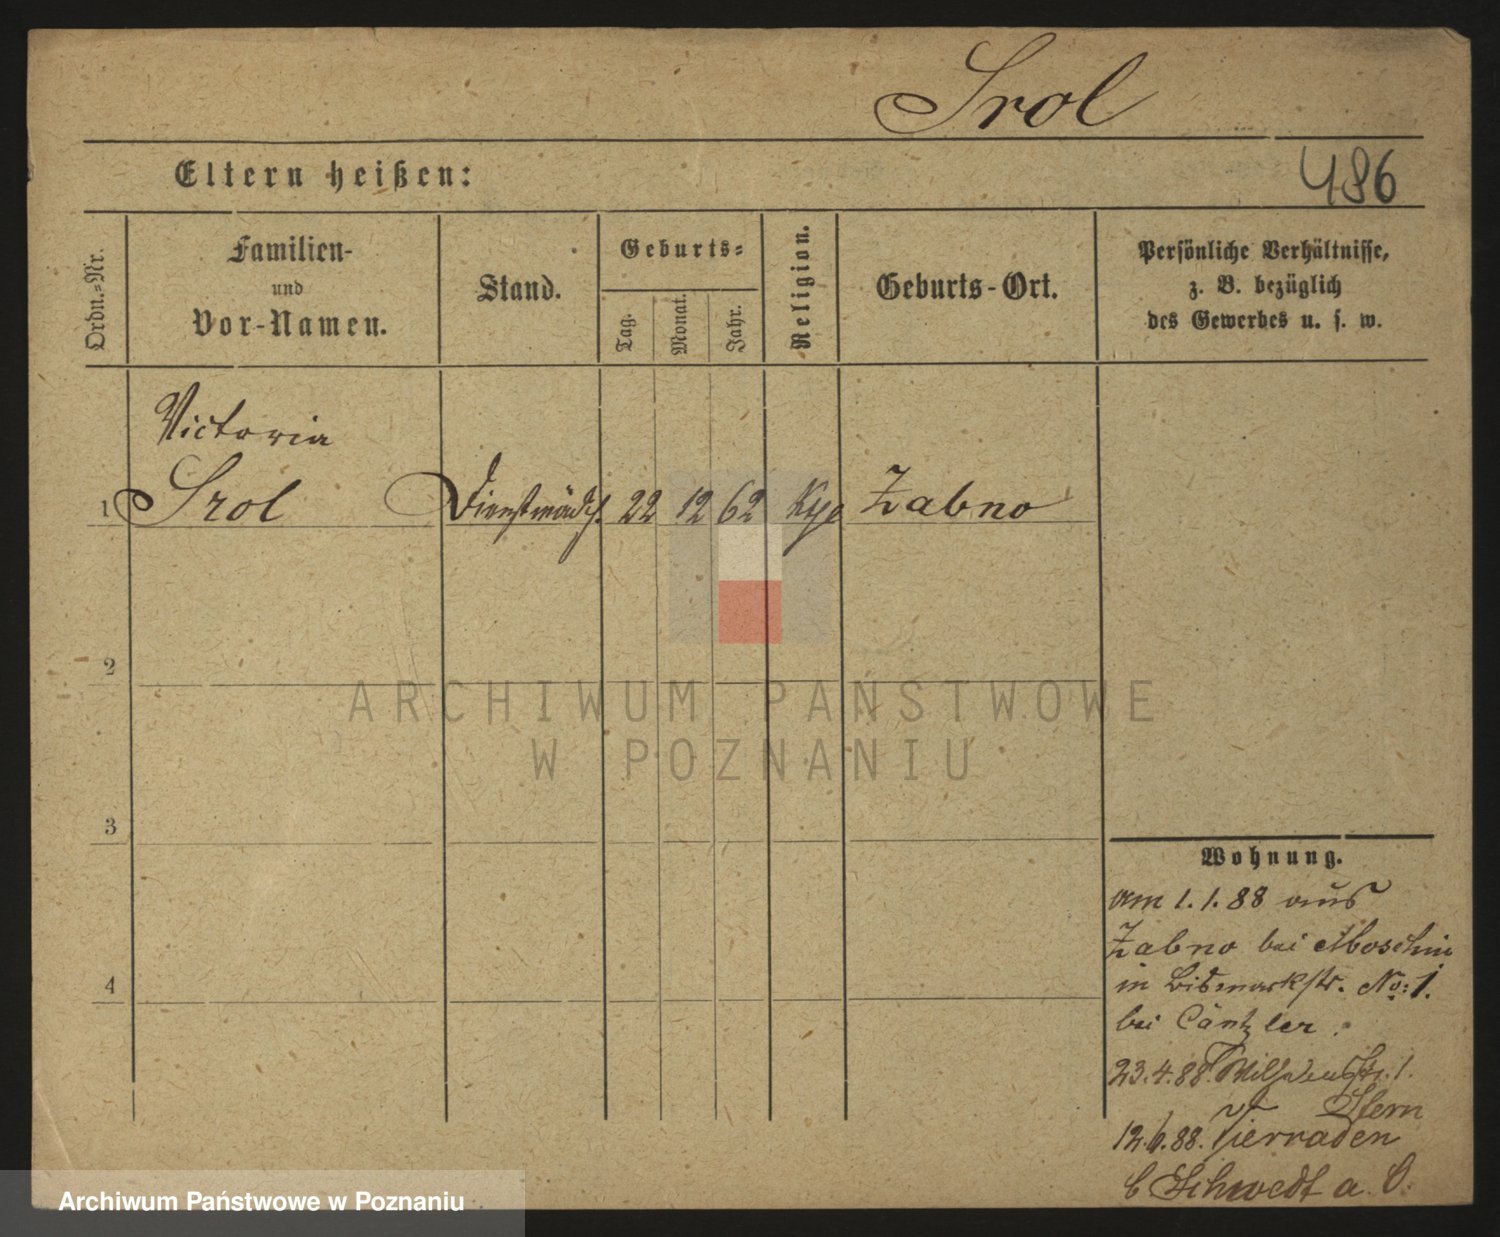 Srol
Eltern heißen:
486
Ordn.-Nr.
Familien-
und
Vor-Namen.
Stand.
Geburts-
Tag.
Monat.
Jahr.
Religion.
Geburts-Ort.
Persönliche Verhältnisse,
z. B. bezüglich
des Gewerbes u. s. w.
Victoria
1 Srol Dienstmädch. 22 12 62 Zabno
2
3
4
Wohnung.
am 1.1.88 aus
Zabno bei Moschin
in Bismarkstr. No: 1.
bei Cäntzler.
23.4.88. Wilhelmstr. 1.
Stern
12.6.88. Vierraden
b Schwedt a. O.
ARCHIWUM PAŃSTWOWE
W POZNANIU
Archiwum Państwowe w Poznaniu